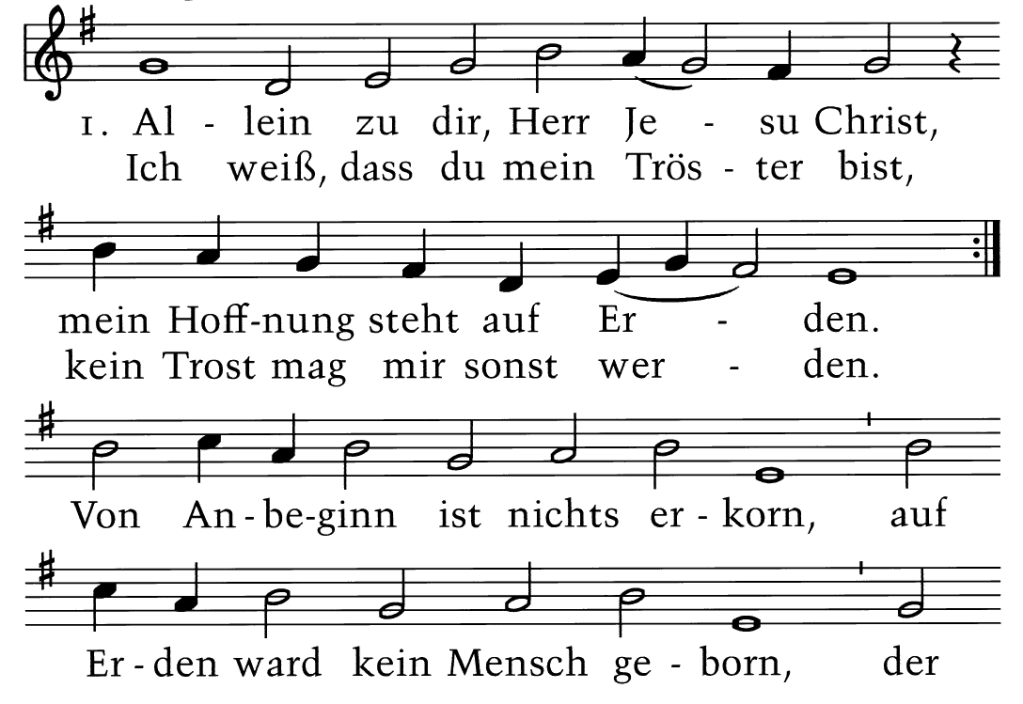 1. Al - lein zu dir, Herr Je - su Christ,
Ich weiß, dass du mein Trös - ter bist,
mein Hoff-nung steht auf Er - den.
kein Trost mag mir sonst wer - den.
Von An - be-ginn ist nichts er - korn, auf
Er - den ward kein Mensch ge - born, der